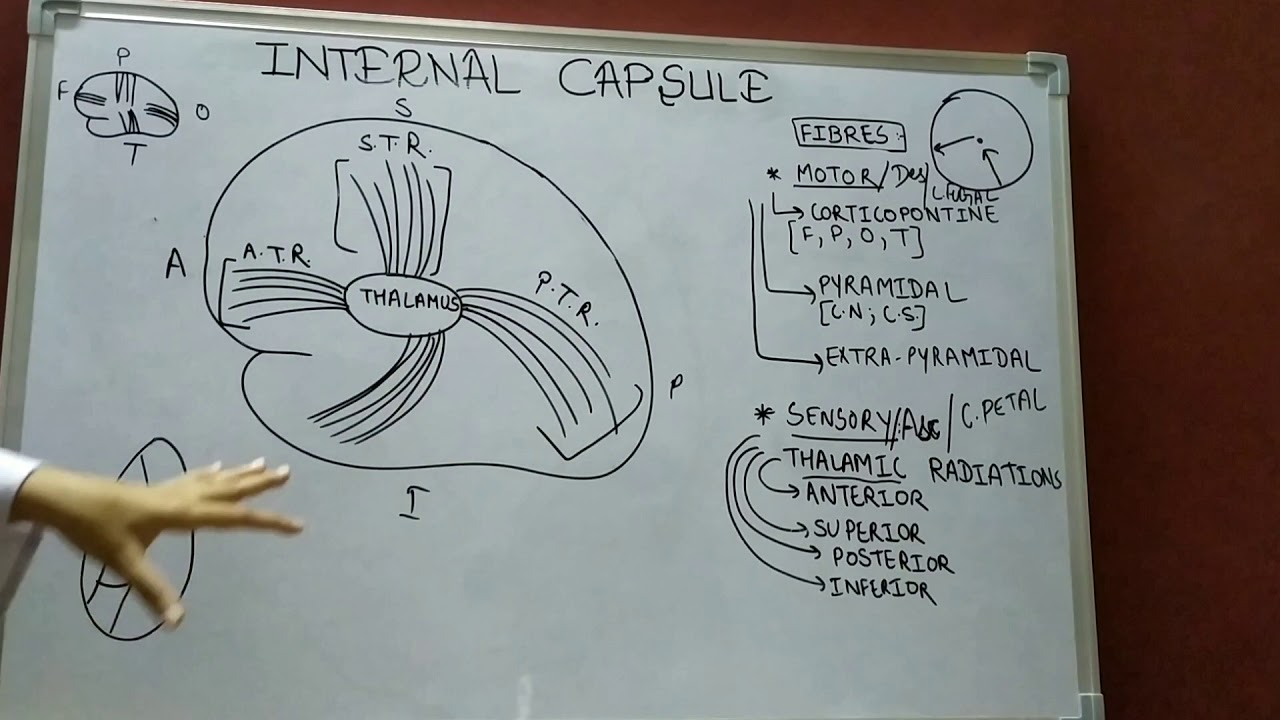 INTERNAL CAPSULE
P
F
O
T
S
S.T.R.
A
A.T.R.
THALAMUS
P.T.R.
P
I
FIBRES:-
* MOTOR/Des/
C.FUGAL
CORTICOPONTINE
[F, P, O, T]
PYRAMIDAL
[C.N; C.S]
EXTRA-PYRAMIDAL
* SENSORY/Asc/C.PETAL
THALAMIC RADIATIONS
ANTERIOR
SUPERIOR
POSTERIOR
INFERIOR